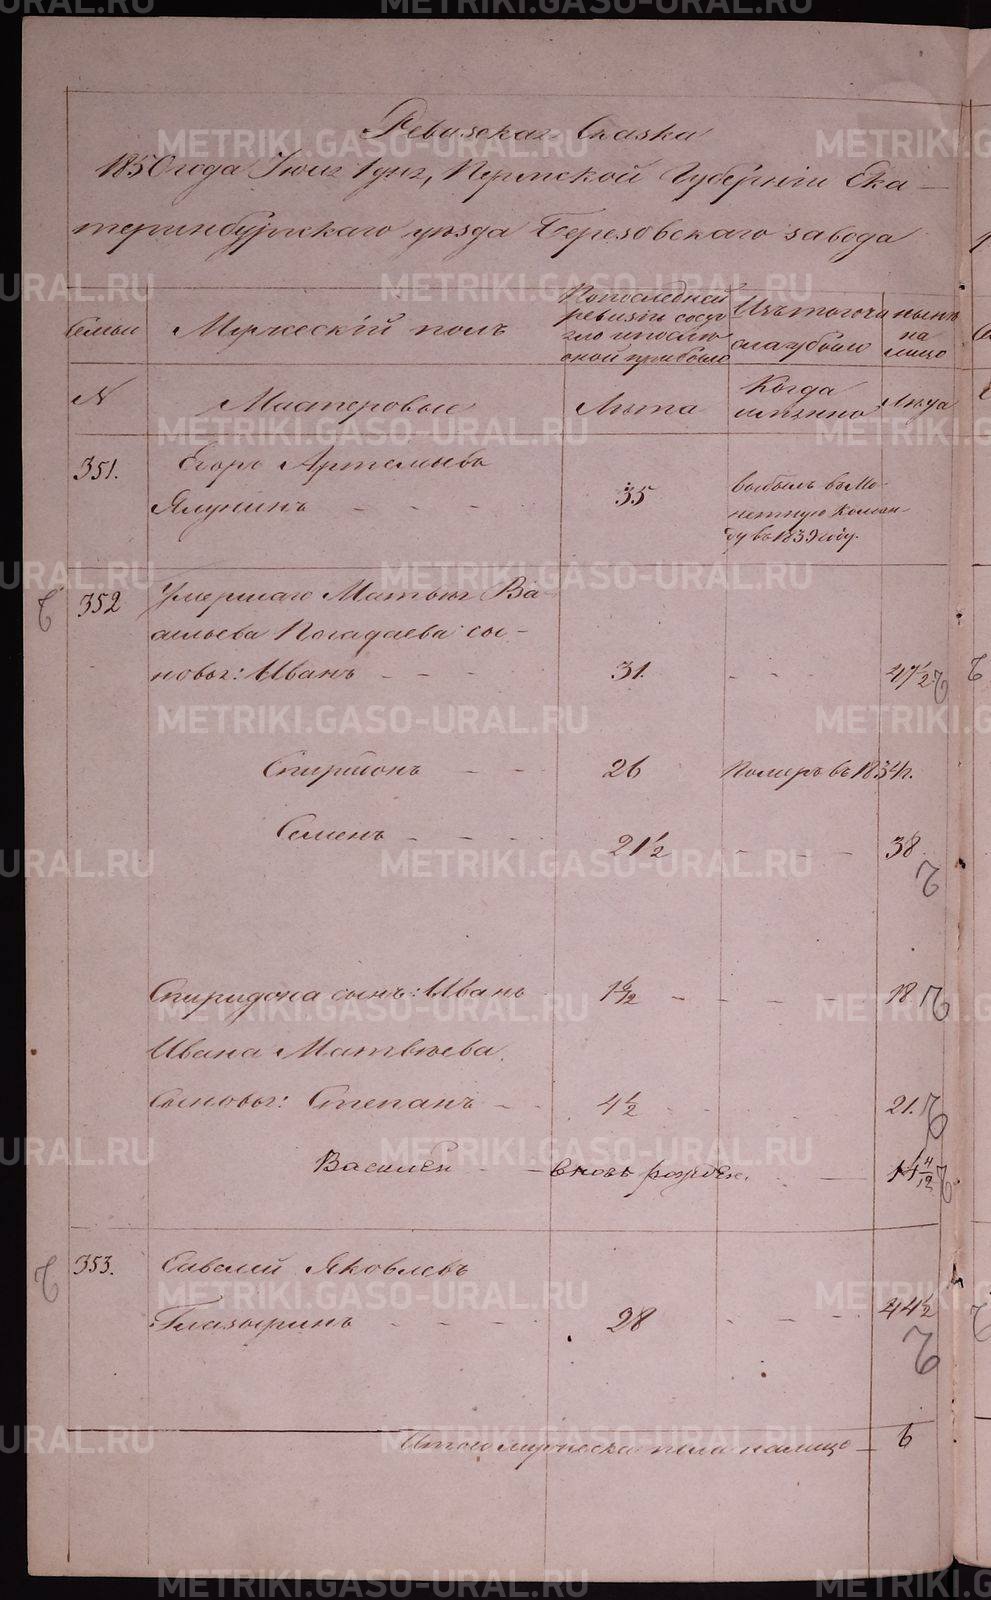 Ревизская Сказка
1850 года Июля 1 дня, Пермской Губернiи Ека-
теринбургскаго уѣзда Березовскаго завода
Семьи
Мужескiй полъ
По последней
ревизiи состо
яло и после
оной прибыло
Изъ того числа
выбыло
нынѣ
на
лицо
N
Мастеровые
Лѣта
Когда
имянно
Лѣта
351.
Егоръ Артемьевъ
Ялунинъ - - - -
35
выбылъ въ Мо-
нетную коман-
ду въ 1839 году.
352
Умершаго Матвея Ва-
сильева Погадаева сы-
новья: Иванъ - - -
31.
- - -
47 1/2
Спиридонъ - -
26
Померъ въ 1834 г.
Семенъ - - -
21 1/2
- - -
38
Спиридона сынъ: Иванъ
1 6/12
- - - -
18
Ивана Матвѣева
Сыновья: Степанъ -
4 1/2
- - -
21.
Василей - -
вновь рожден.
- -
11 4/12
353.
Савелей Яковлевъ
Глазыринъ - - - -
28
- - -
44 1/2
Итого мужеска пола налицо -
6
METRIKI.GASO-URAL.RU